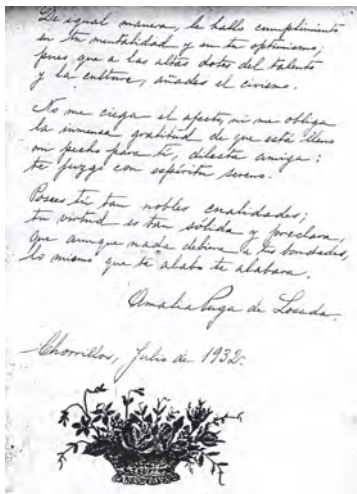 De igual manera, le hallo cumplimiento
en tu mentalidad y en tu optimismo;
pues, que a las altas dotes del talento
y la cultura, añades el civismo.
No me ciega el afecto, ni me obliga
la inmensa gratitud de que está lleno
mi pecho para tí, dilecta amiga:
te juzgo con espíritu sereno.
Posees tú tan nobles cualidades;
tu virtud es tan sólida y preclara,
que aunque nada debiera a tus bondades,
lo mismo que te alabo te alabara.
Amalia Puga de Losada.
Chorrillos, Julio de 1932.